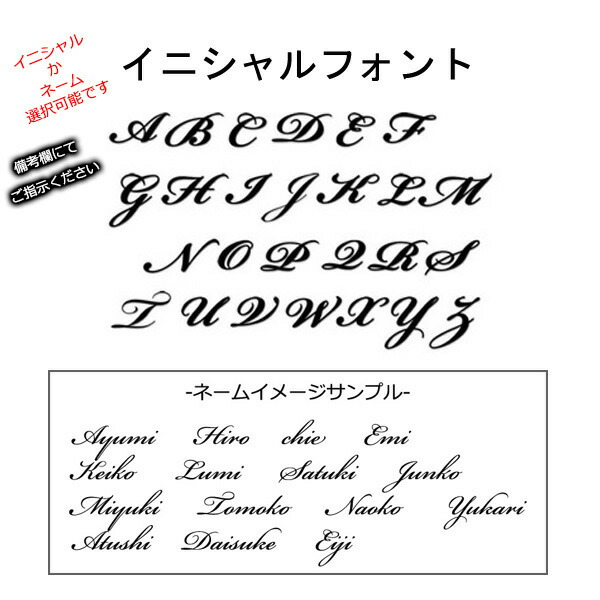 イニシャル
か
ネーム
選択可能です
イニシャルフォント
備考欄にて
ご指示ください
A B C D E F
G H I J K L M
N O P Q R S
T U V W X Y Z
-ネームイメージサンプル-
Ayumi Hiro chie Emi
Keiko Lumi Satuki Junko
Miyuki Tomoko Naoko Yukari
Atushi Daisuke Eiji